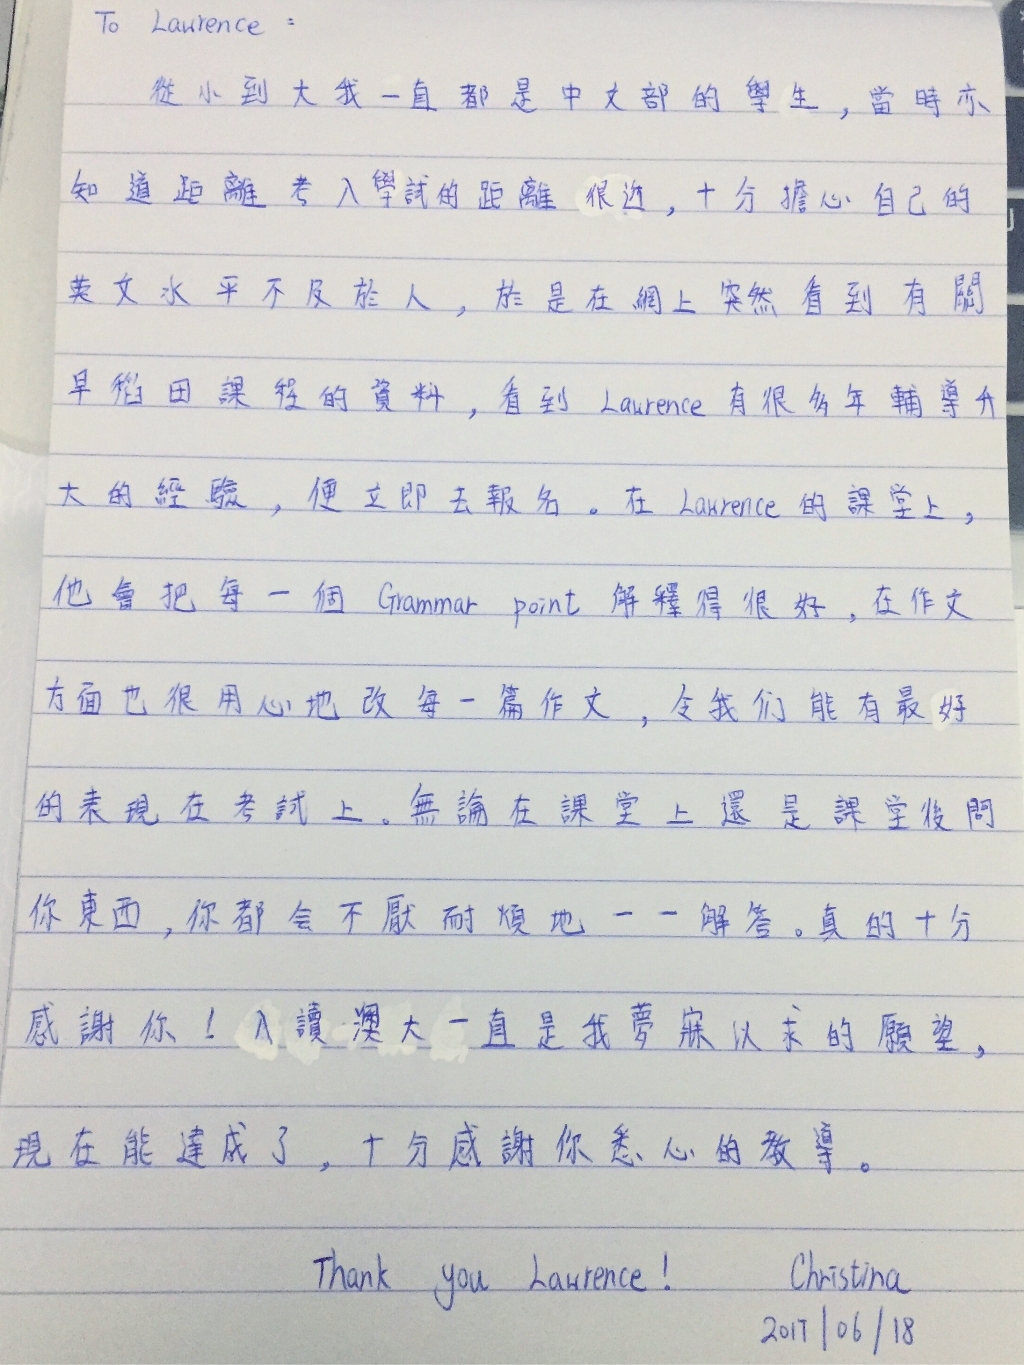 To Lawrence :
從小到大我一直都是中文部的學生，當時亦
知道距離考入學試的距離很近，十分擔心自己的
英文水平不及於人，於是在網上突然看到有關
早稻田課程的資料，看到 Lawrence 有很多年輔導升
大的經驗，便立即去報名。在 Lawrence 的課堂上，
他會把每一個 Grammar point 解釋得很好，在作文
方面也很用心地改每一篇作文，令我们能有最好
的表現在考試上。無論在課堂上還是課堂後問
你東西，你都会不厭耐煩地一一解答。真的十分
感謝你！入讀澳大一直是我夢寐以求的願望，
現在能達成了，十分感謝你悉心的教導。
Thank you Lawrence! Christina
2017/06/18